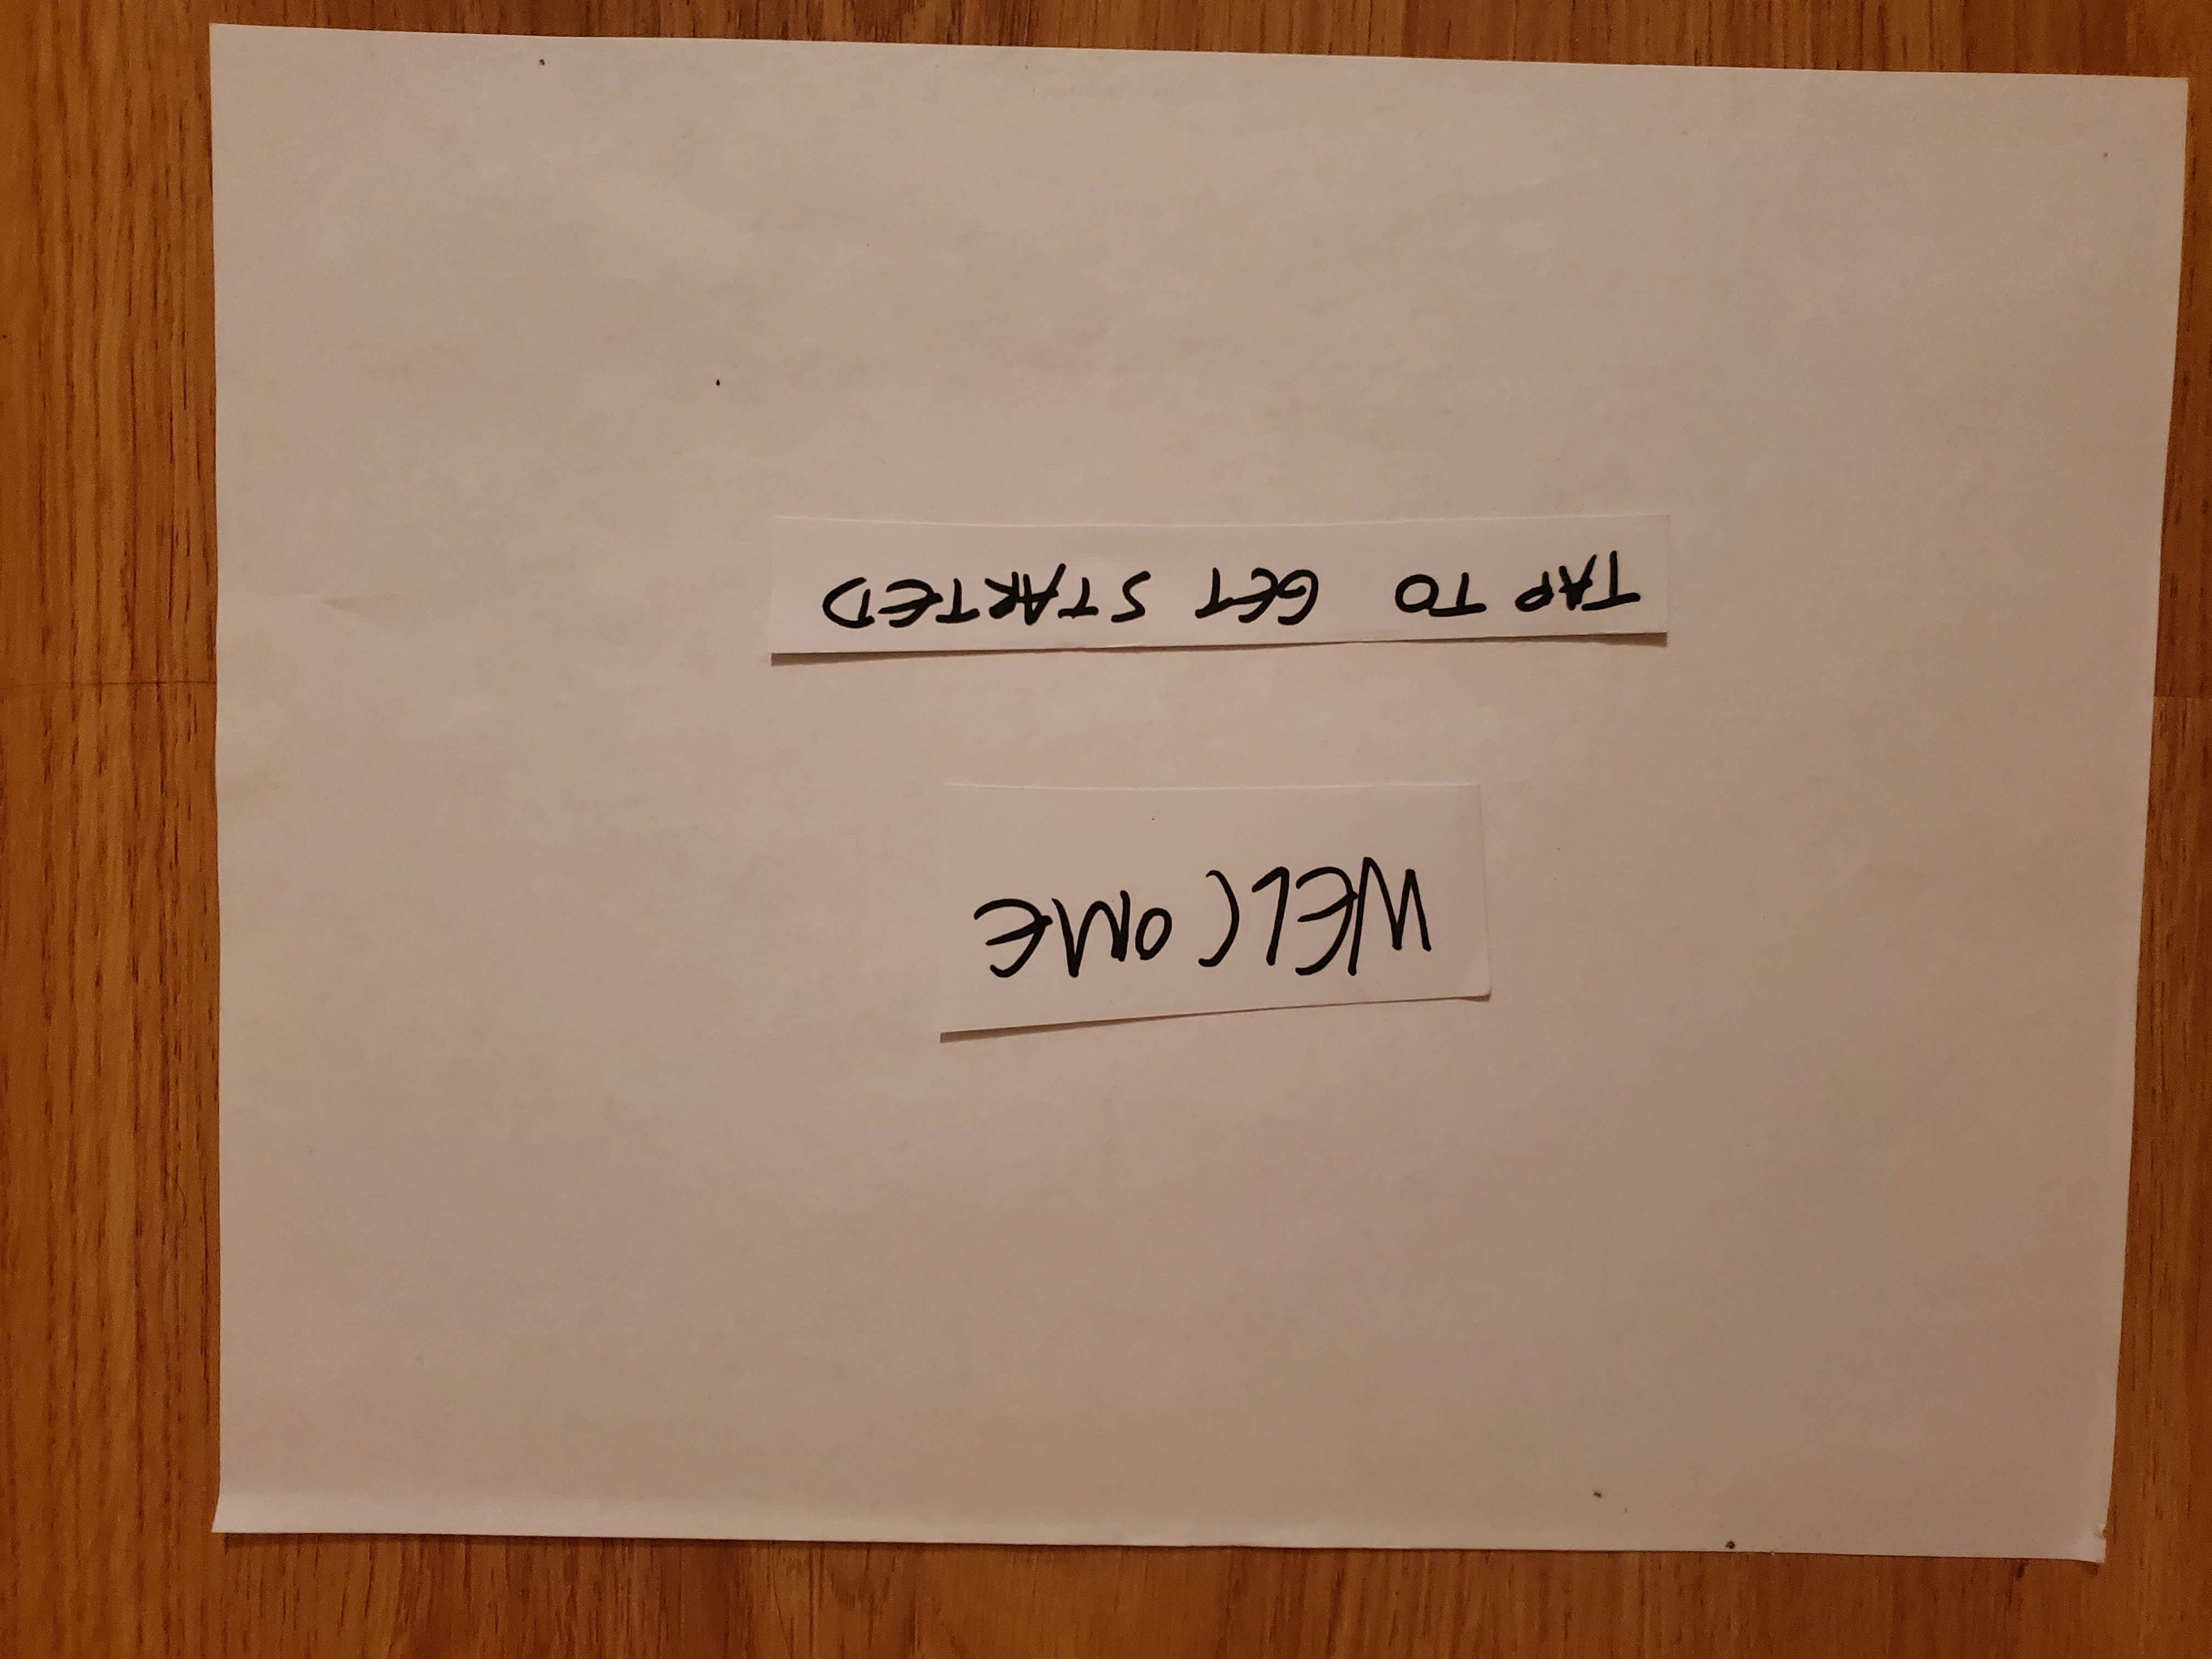 WELCOME
TAP TO GET STARTED